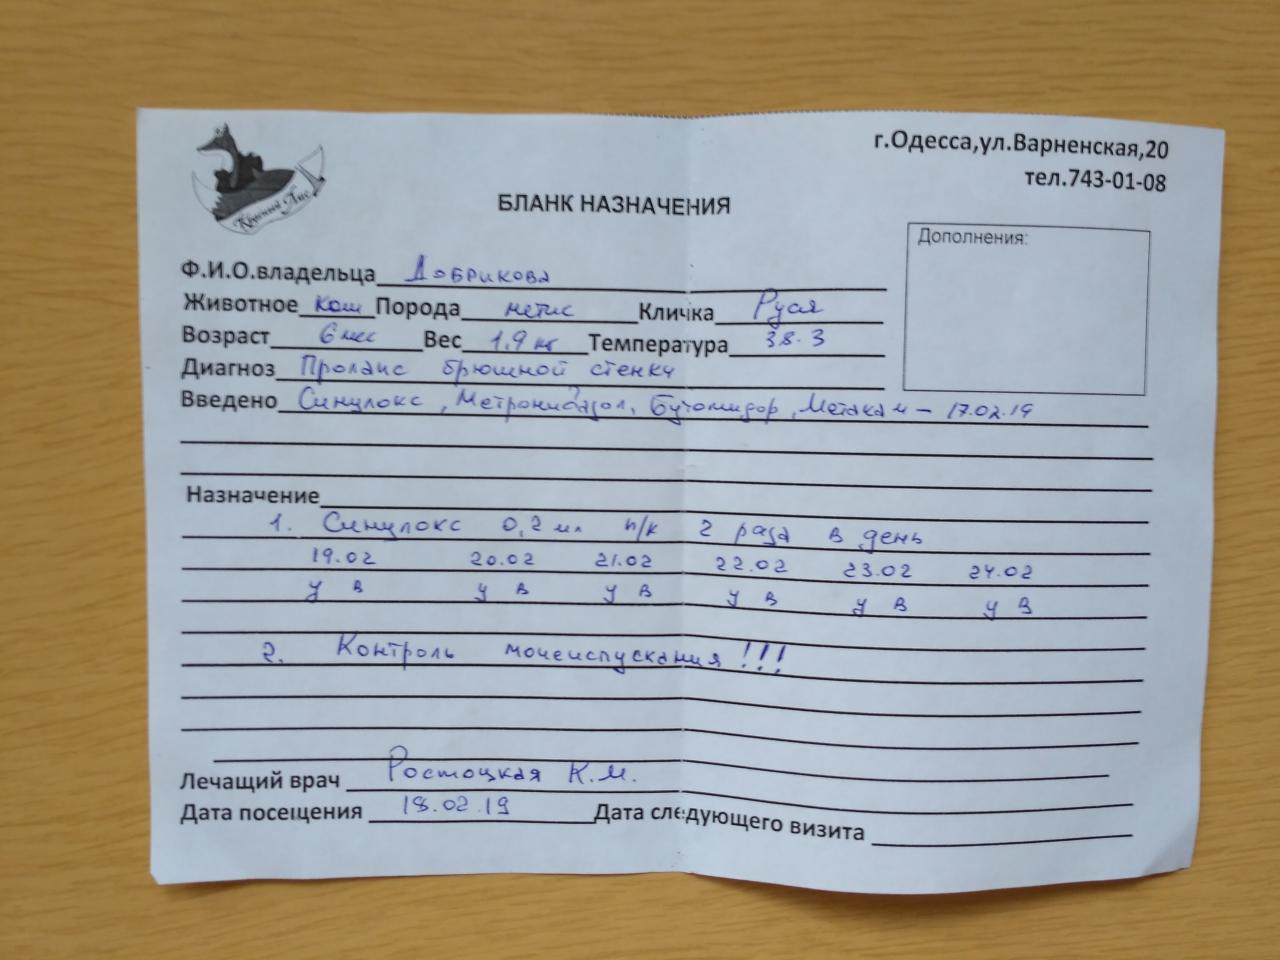 г.Одесса,ул.Варненская,20
тел.743-01-08
Красный Лис
БЛАНК НАЗНАЧЕНИЯ
Дополнения:
Ф.И.О.владельца Добрикова
Животное кош Порода метис Кличка Руся
Возраст 6 мес Вес 1.9 кг Температура 38.3
Диагноз Пролапс брюшной стенки
Введено Синулокс, Метронидазол, Бутомидор, Метакам – 17.02.19
Назначение
1. Синулокс 0,2 мл п/к 2 раза в день
19.02 20.02 21.02 22.02 23.02 24.02
у в у в у в у в у в у в
2. Контроль мочеиспускания!!!
Лечащий врач Ростоцкая К.М.
Дата посещения 18.02.19 Дата следующего визита